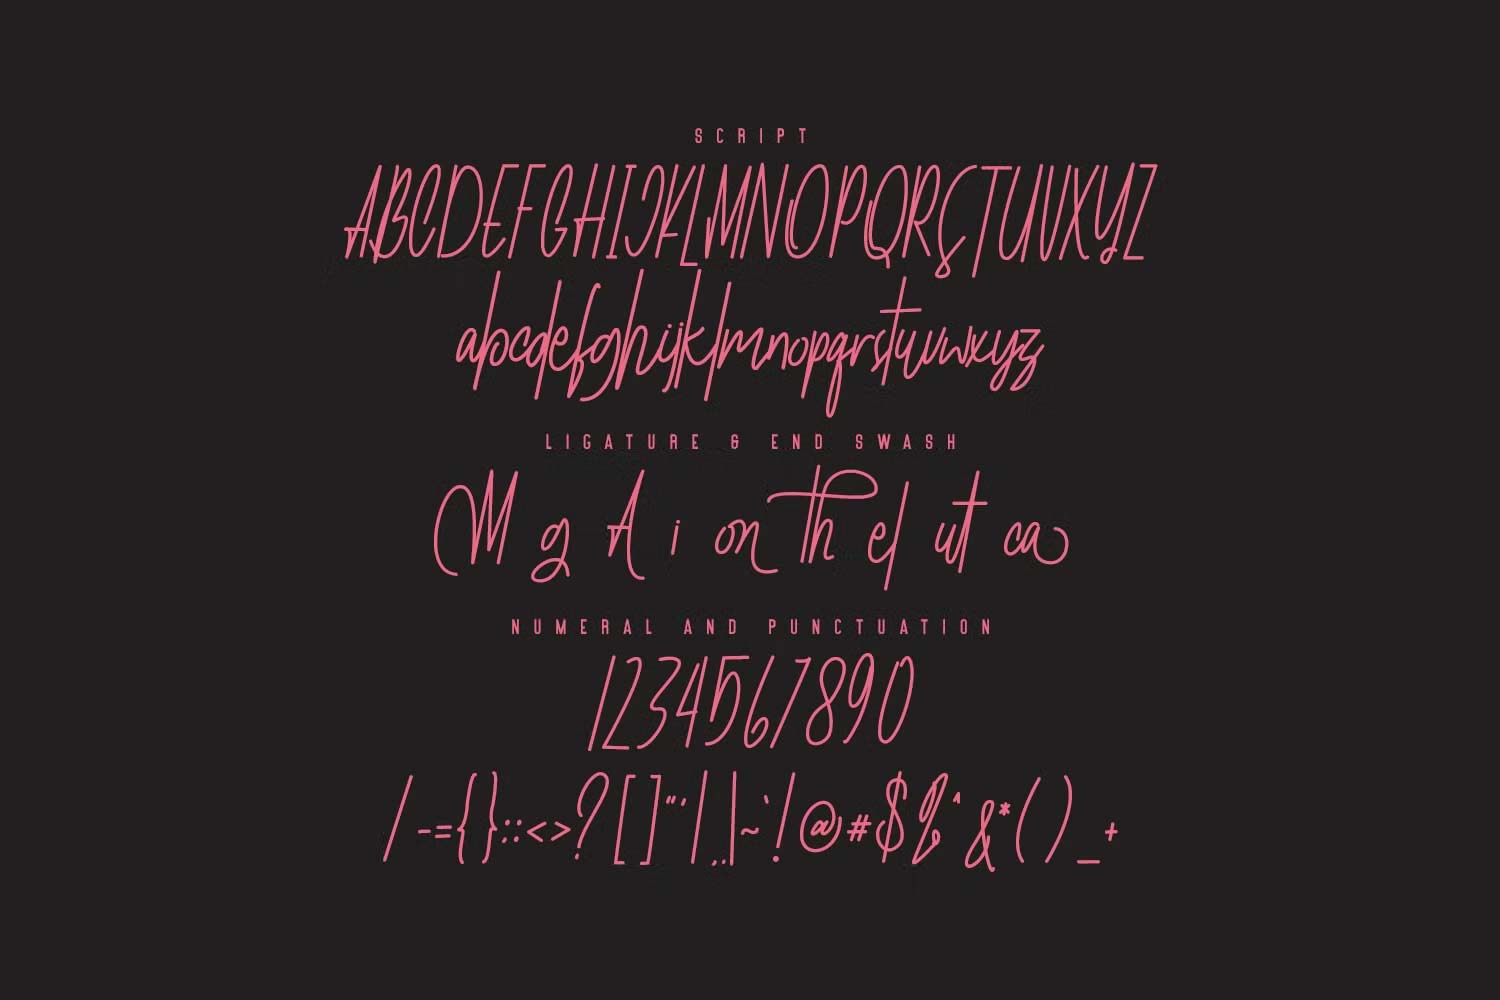 SCRIPT
ABCDEFGHIJKLMNOPQRSTUVXYZ
abcdefghijklmnopqrstuvwxyz
LIGATURE & END SWASH
M g A i on th el ut ca
NUMERAL AND PUNCTUATION
1234567890
/-={}::<>?[]"'\,.|~`!@#$%^&*()_+